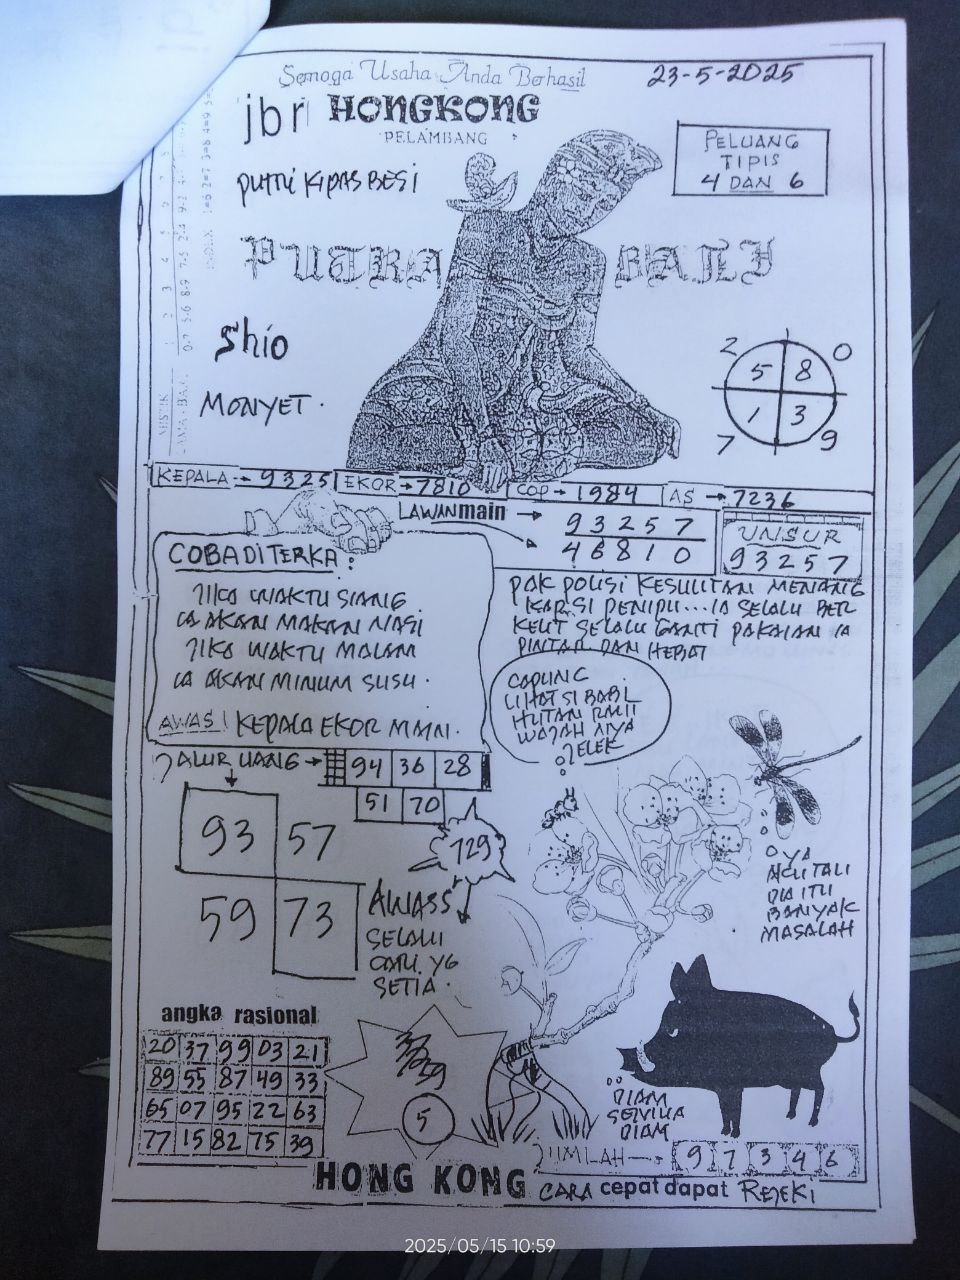 Semoga Usaha Anda Berhasil
23-5-2025
jbr HONGKONG
PELAMBANG
PELUANG
TIPIS
4 DAN 6
PUTRI KIPAS BESI
PUTRA BALI
Shio
MONYET.
2 0
5 8
1 3
7 9
KEPALA → 9325 EKOR → 7810 COP → 1984 AS → 7236
LAWAN main → 93257
46810
UNSUR
93257
COBA DITERKA :
JIKA WAKTU SIANG
IA AKAN MAKAN NASI
JIKA WAKTU MALAM
IA AKAN MINUM SUSU.
AWAS! KEPALA EKOR MAIN.
PAK POLISI KESULITAN MENANG
KAP SI PENIPU... IA SELALU BER
KELIT SELALU GANTI PAKAIAN IA
PINTAR DAN HEBAT
CAPUNG
LIHAT SI BABI
HUTAN RAUT
WAJAH NYA
JELEK
JALUR UANG → 94 36 28
51 70
93 57
59 73
129
AWASS
SELALU
CARI YG
SETIA.
OYA
ITU
BANYAK
MASALAH
angka rasional
20 37 99 03 21
89 55 87 49 33
65 07 95 22 63
77 15 82 75 39
5
DIAM
SEMUA
DIAM
JUMLAH → 9 7 3 4 6
HONG KONG
CARA cepat dapat REJEKI
2025/05/15 10:59